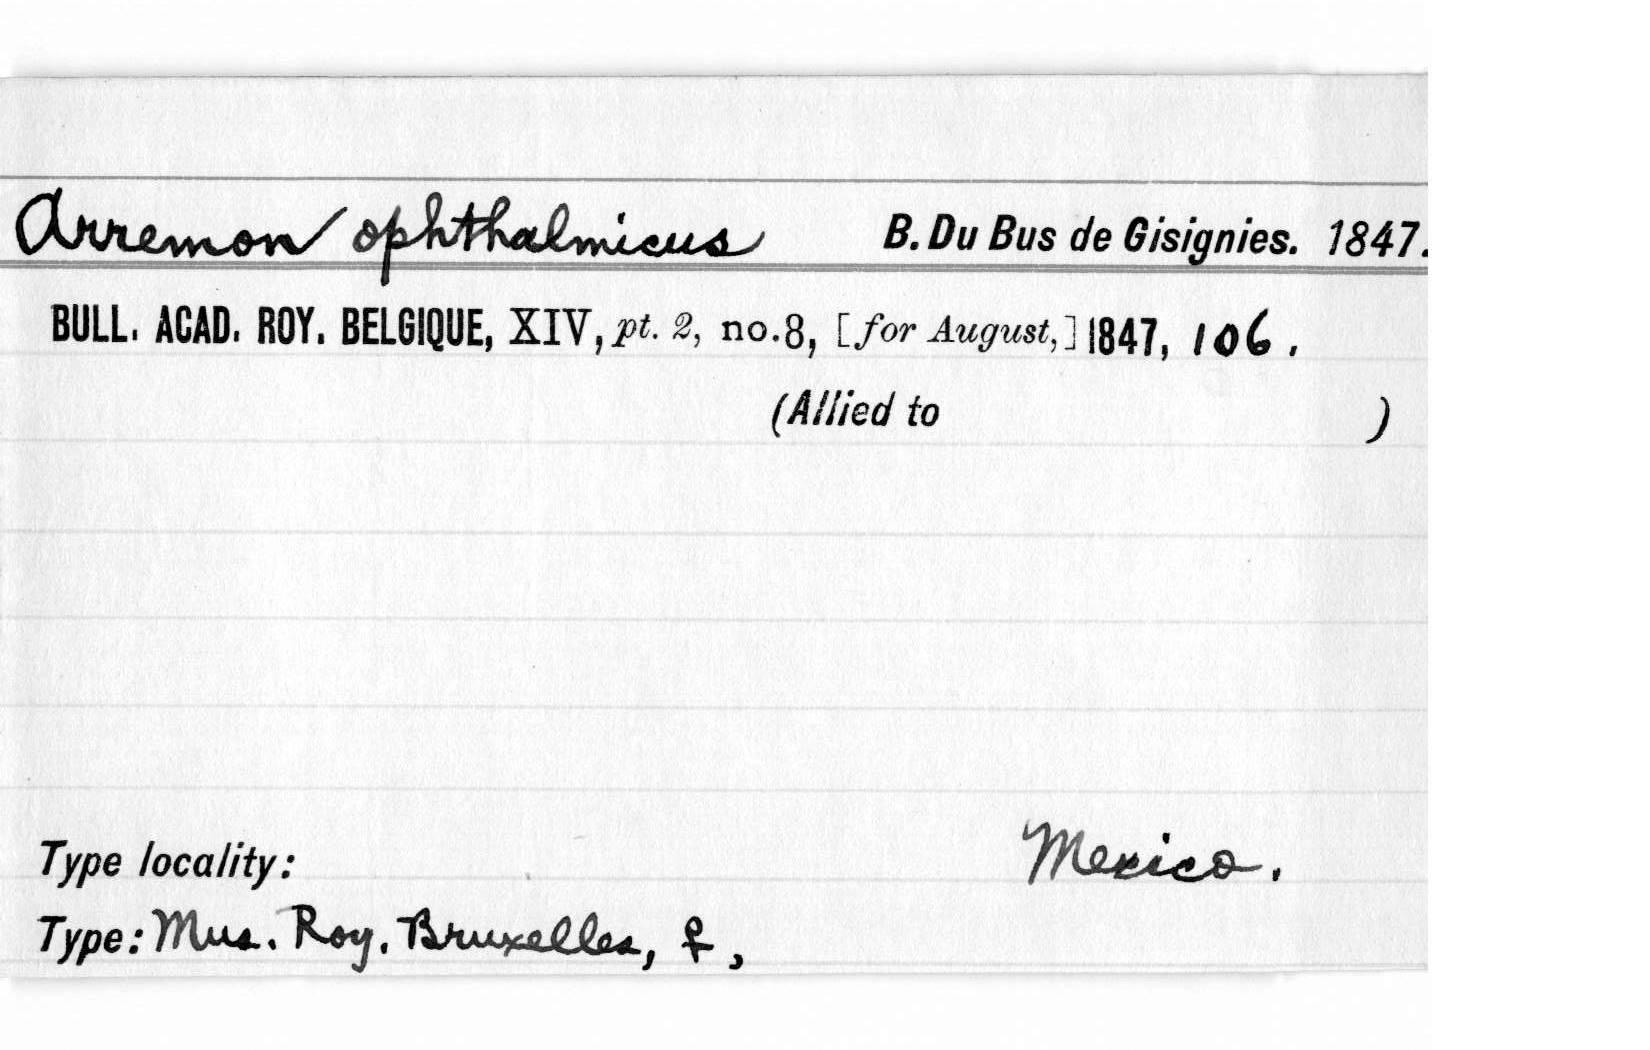 Arremon ophthalmicus B. Du Bus de Gisignies. 1847.
BULL. ACAD. ROY. BELGIQUE, XIV, pt. 2, no. 8, [for August,] 1847, 106.
(Allied to )
Type locality: Mexico.
Type: Mus. Roy. Bruxelles, ♀,